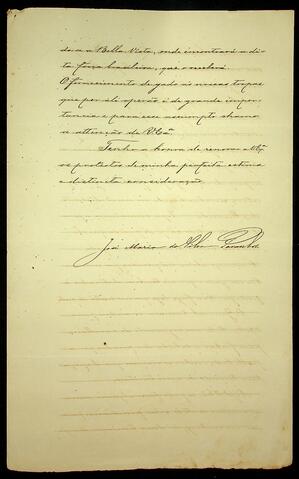 do a a Bella Vista, onde encontrará a di-
ta força brasileira, que o receberá.
O fornecimento de gado ás nossas tropas
que por ali operão é de grande impor-
tancia e para esse assumpto chamo
a attenção de V. Ex.ª
Tenho a honra de renovar a V. Ex.ª
os protestos de minha perfeita estima
e distincta consideração
José Maria da Silva Paranhos